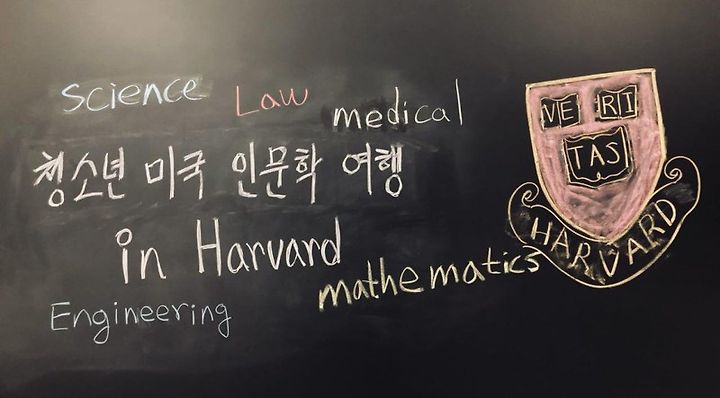 Science Law medical
청소년 미국 인문학 여행
in Harvard
mathematics
Engineering
VE RI
TAS
HARVARD